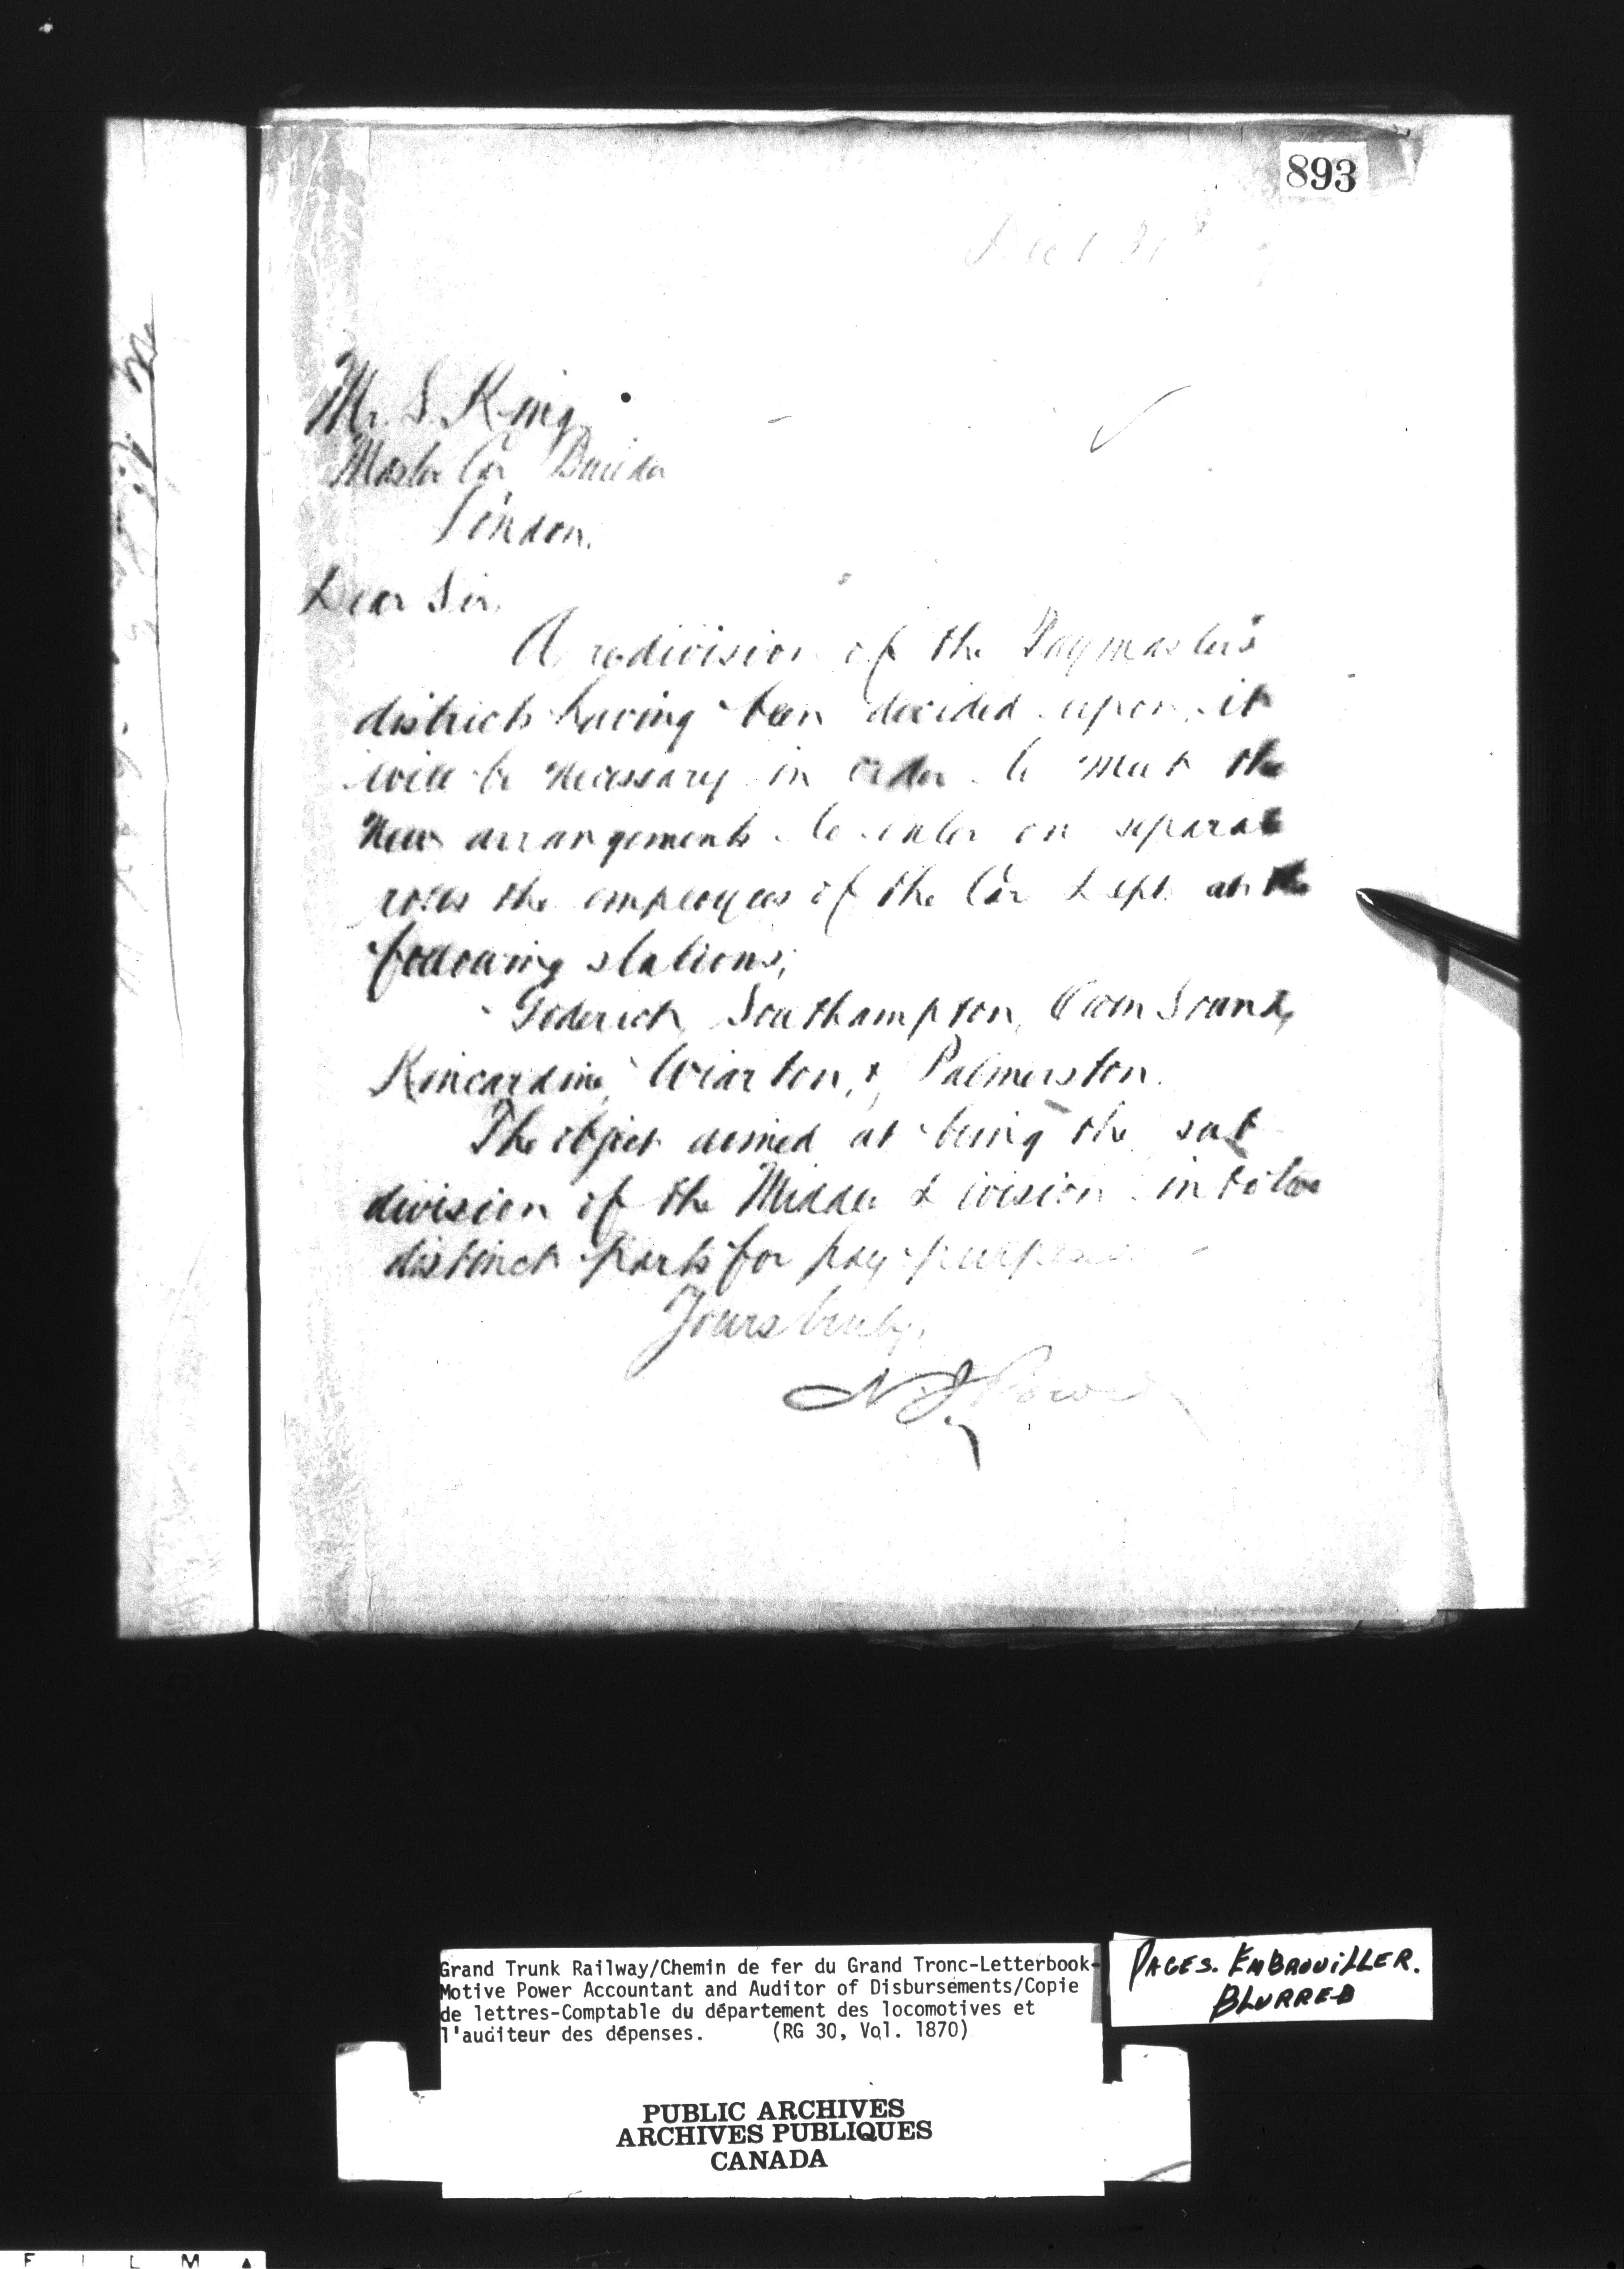 893
Mr. S. King
Master Car Builder
London.
Dear Sir,
A redivision of the Paymaster's
districts having been decided upon, it
will be necessary in order to meet the
new arrangements to enter on separate
rolls the employees of the Car Dept. at the
following stations;
Goderich, Southampton, Owen Sound,
Kincardine, Wiarton, & Palmerston.
The object aimed at being the sub
division of the Middle Division into two
distinct parts for pay purposes
Yours truly,
N J Power
Grand Trunk Railway/Chemin de fer du Grand Tronc-Letterbook-
Motive Power Accountant and Auditor of Disbursements/Copie
de lettres-Comptable du département des locomotives et
l'auditeur des dépenses. (RG 30, Vol. 1870)
PAGES. EMBROUILLER.
BLURRED
PUBLIC ARCHIVES
ARCHIVES PUBLIQUES
CANADA
F I L M A